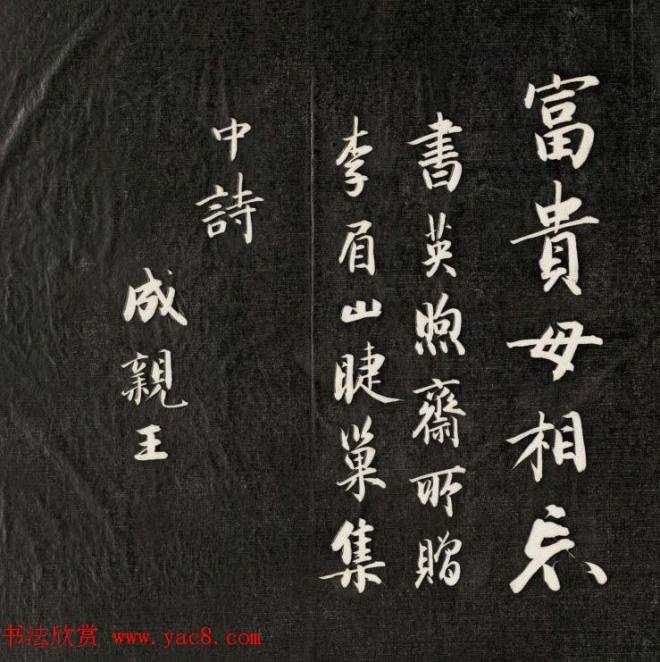 富貴毋相忘
書英煦齋所贈
李眉山睫巢集
中詩
成親王
书法欣赏 www.yac8.com